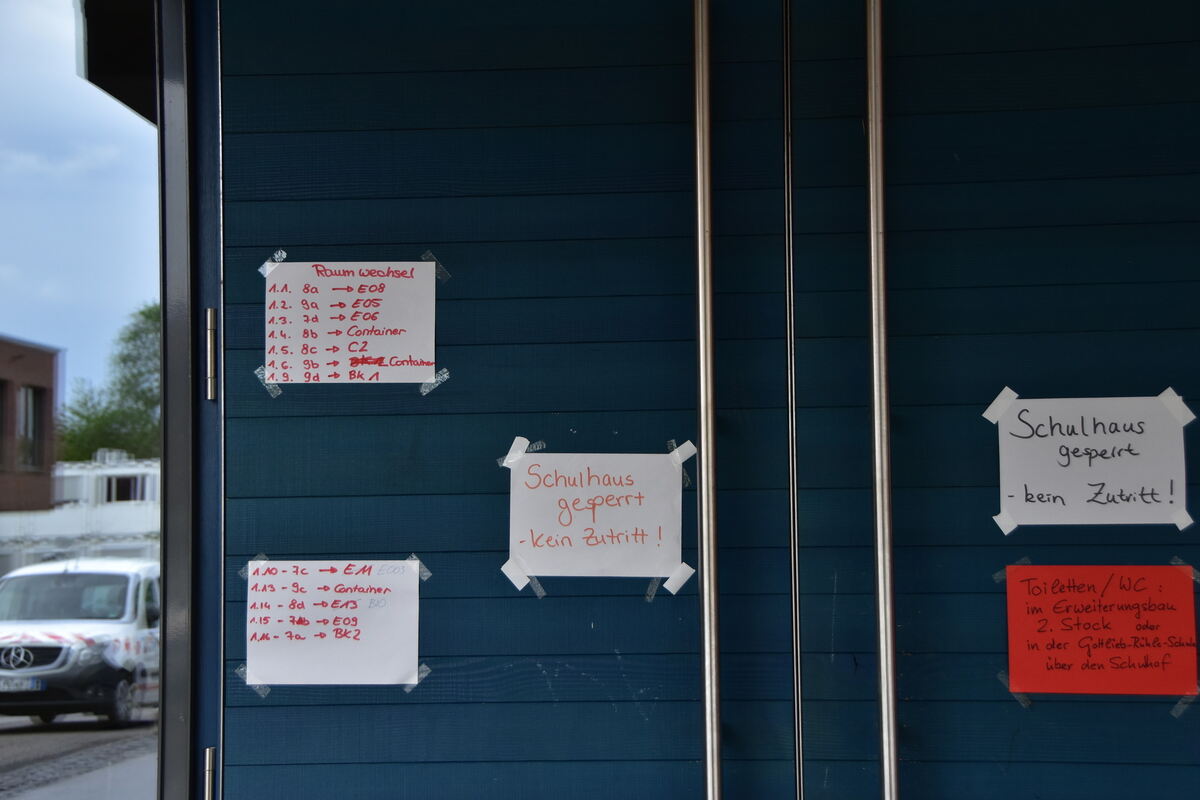 Raumwechsel
1.1. 8a → E08
1.2. 9a → E05
1.3. 7d → E06
1.4. 8b → Container
1.5. 8c → C2
1.6. 9b → Container
1.9. 9d → Bk 1
1.10 - 7c → E11 E003
1.13 - 9c → Container
1.14 - 8d → E13
1.15 - 7b → E09
1.16 - 7a → BK2
Schulhaus
gesperrt
- kein Zutritt!
Schulhaus
gesperrt
- kein Zutritt!
Toiletten / WC :
im Erweiterungsbau
2. Stock oder
in der Gottlieb-Rühle-Schule
über den Schulhof